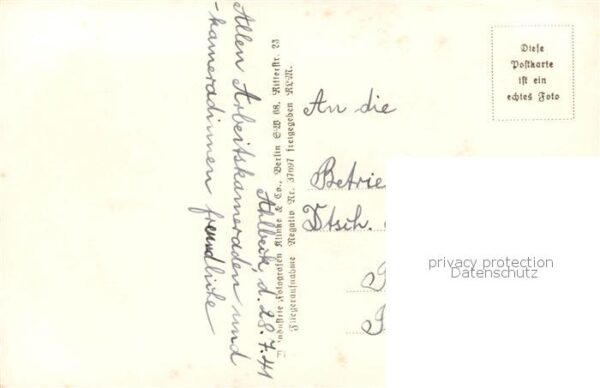 Ahlbeck, d. 28.7.41
Allen Arbeitskameraden und
-kameradinnen freundliche
Industrie-Fotografen Klinke & Co., Berlin SW 68, Ritterstr. 23
Fliegeraufnahme Negativ Nr. 37097 freigegeben RLM.
Diese
Postkarte
ist ein
echtes Foto
An die
Betrie
Dtsch.
privacy protection
Datenschutz